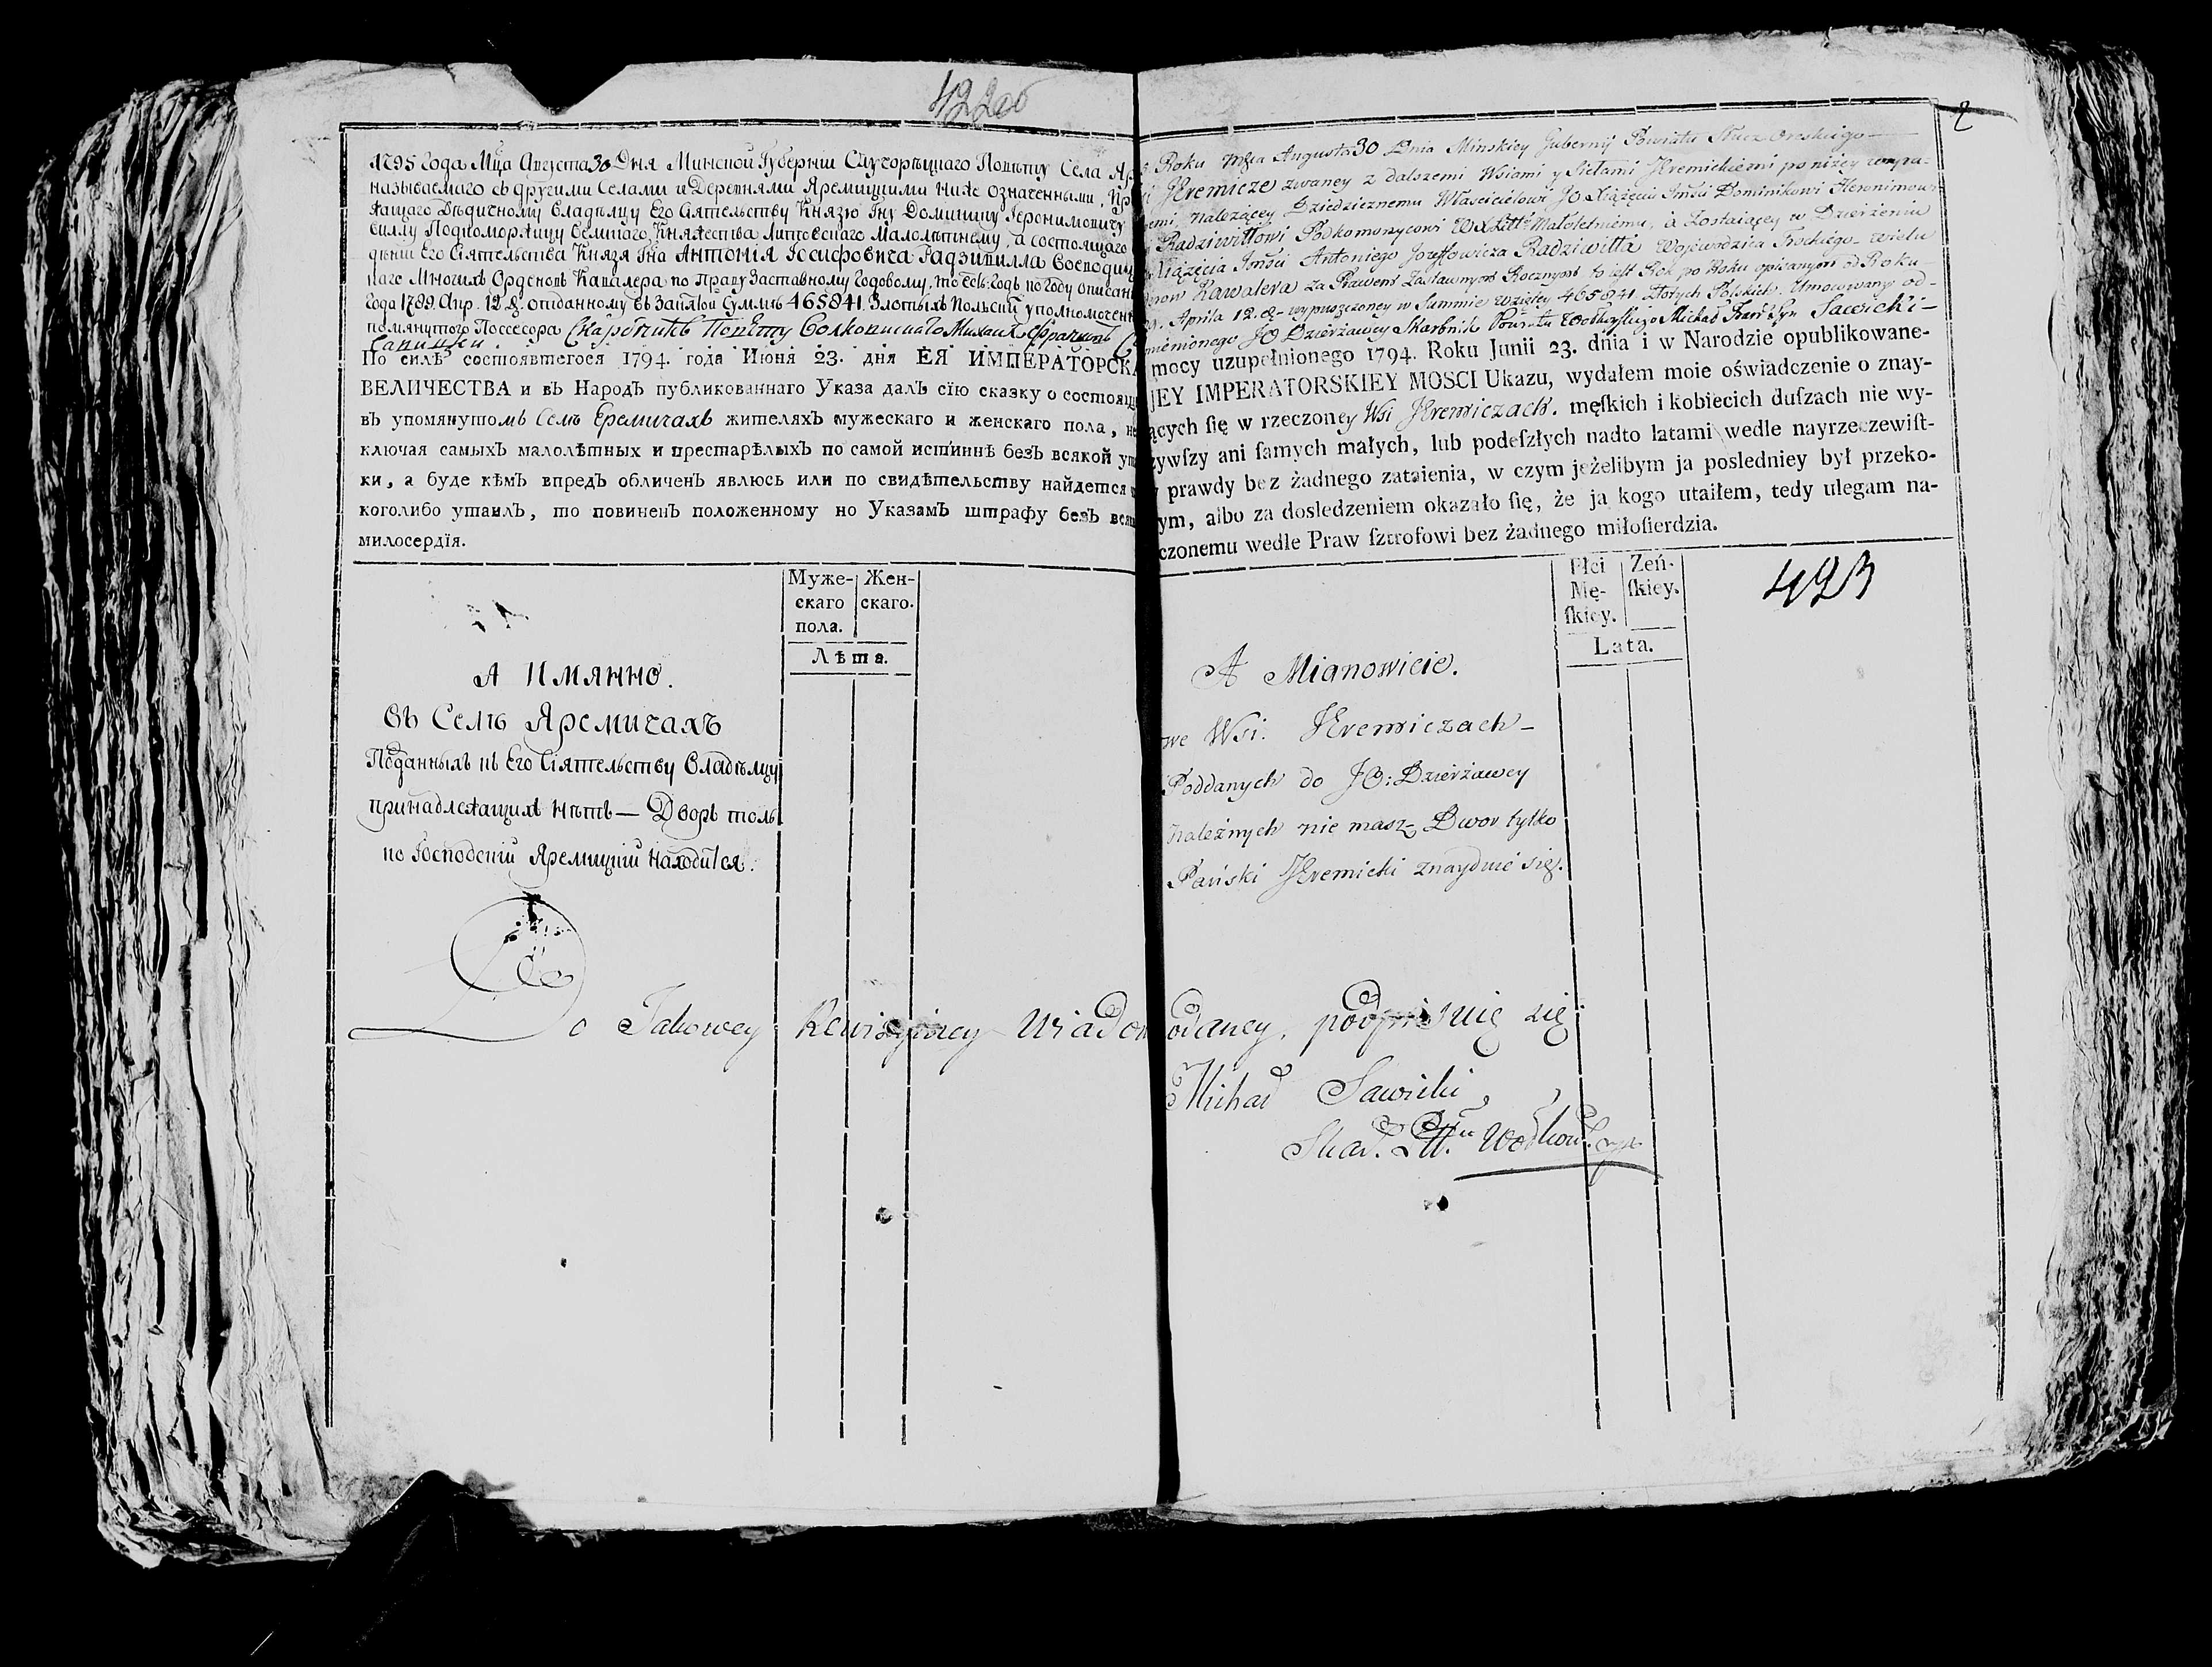 422об
1795 Года Мца Августа 30 Дня Минской Губерніи Случорѣцкаго Повѣту Села Яр
называемаго съ другими Селами и Деревнями Яремицкими ниже означенными, пр
жащаго Дѣдичному Владѣлцу Его Сіятельству Князю Гну Доминику Іеронимовичу
виллу Подкоморжицу Великаго Княжества Литовскаго Малолѣтнему, а состоящаго
дѣніи Его Сіятельства Князя Гна Антонія Іосифовича Радзивилла Воеводи
каго Многихъ Орденовъ Кавалера по Праву Заставному Годовому, то есть: годъ по году описан
Года 1789. Апр. 12 д. отданному въ Занятой Суммѣ 465841. Злотыхъ Польски уполномочен
помянутого Поссесора Скарбникъ Повѣту Волковискаго Михаилъ
Савицкій.
По силѣ состоявшегося 1794. года Июня 23. дня ЕЯ ИМПЕРАТОРСК
ВЕЛИЧЕСТВА и въ Народъ публикованнаго Указа далъ сїю сказку о состоящ
въ упомянутомъ Селѣ Еремичахъ жителяхъ мужескаго и женскаго пола, не
ключая самыхъ малолѣтныхъ и престарѣлыхъ по самой истиннѣ безъ всякой ут
ки, а буде кѣмъ впредъ обличенъ явлюсь или по свидѣтельству найдется
коголибо утаилъ, то повиненъ положенному но Указамъ штрафу безъ вся
милосердїя.
Муже- Жен-
скаго скаго.
пола.
Лѣта.
А Имянно.
Въ Селѣ Яремичахъ
Подданныхъ къ Его Сіятельству Владѣлцу
принадлежащихъ нѣтъ — Дворъ толь
ко Господскій Яремицкій находится.
2
Roku Mca Augusta 30 Dnia Minskiey Gubernij Powiatu Słuczoreckiego
Jeremicze zwaney z dalszemi Wsiami y Siełami Jeremickiemi poniżey wyra-
emi należącey Dziedzicznemu Właścicielowi JO Xiążęciu Jmści Dominikowi Heronimowi
Radziwiłłowi Podkomorzycowi WXLitt Małoletniemu, a Zostaiącey w Dzierżeniu
Xiążęcia Jmści Antoniego Jozeffowicza Radziwiłła Wojewodzica Trockiego wielu
derow Kawalera za Prawem Zastawnym Rocznym to iest Rok po Roku opisanym od Roku
Aprila 12. d. wypuszczoney w Summie Wziętey 465841 Złotych Polskich. Umocowany od
mienionego JO Dzierżawcy Skarbnik Powiatu Wołkowyskiego Michał Syn Sawicki
mocy uzupełnionego 1794. Roku Junii 23. dnia i w Narodzie opublikowane-
JEY IMPERATORSKIEY MOSCI Ukazu, wydałem moie oświadczenie o znay-
ących ſię w rzeczoney Wsi Jeremiczach. męſkich i kobiecich duſzach nie wy-
zywſzy ani ſamych małych, lub podeſzłych nadto latami wedle nayrzeczewiſt-
prawdy bez żadnego zataienia, w czym jeżelibym ja posledniey był przeko-
ym, albo za dosledzeniem okazało ſię, że ja kogo utaiłem, tedy ulegam na-
czonemu wedle Praw ſztrofowi bez żadnego miłoſierdzia.
Płci Żeń-
Mę- ſkiey.
ſkiey.
Lata.
423
A Mianowicie.
we Wsi. Jeremiczach
Poddanych do JO: Dzierżawcy
należnych nie masz, Dwor tylko
Pański Jeremicki znayduie się.
Do Takowey Rewizyiney Wiadomodaney, podpisuię się
Michał Sawicki
Skar.